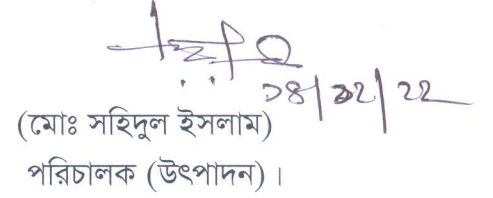 ১৪/১২/২২
(মোঃ সহিদুল ইসলাম)
পরিচালক (উৎপাদন)।